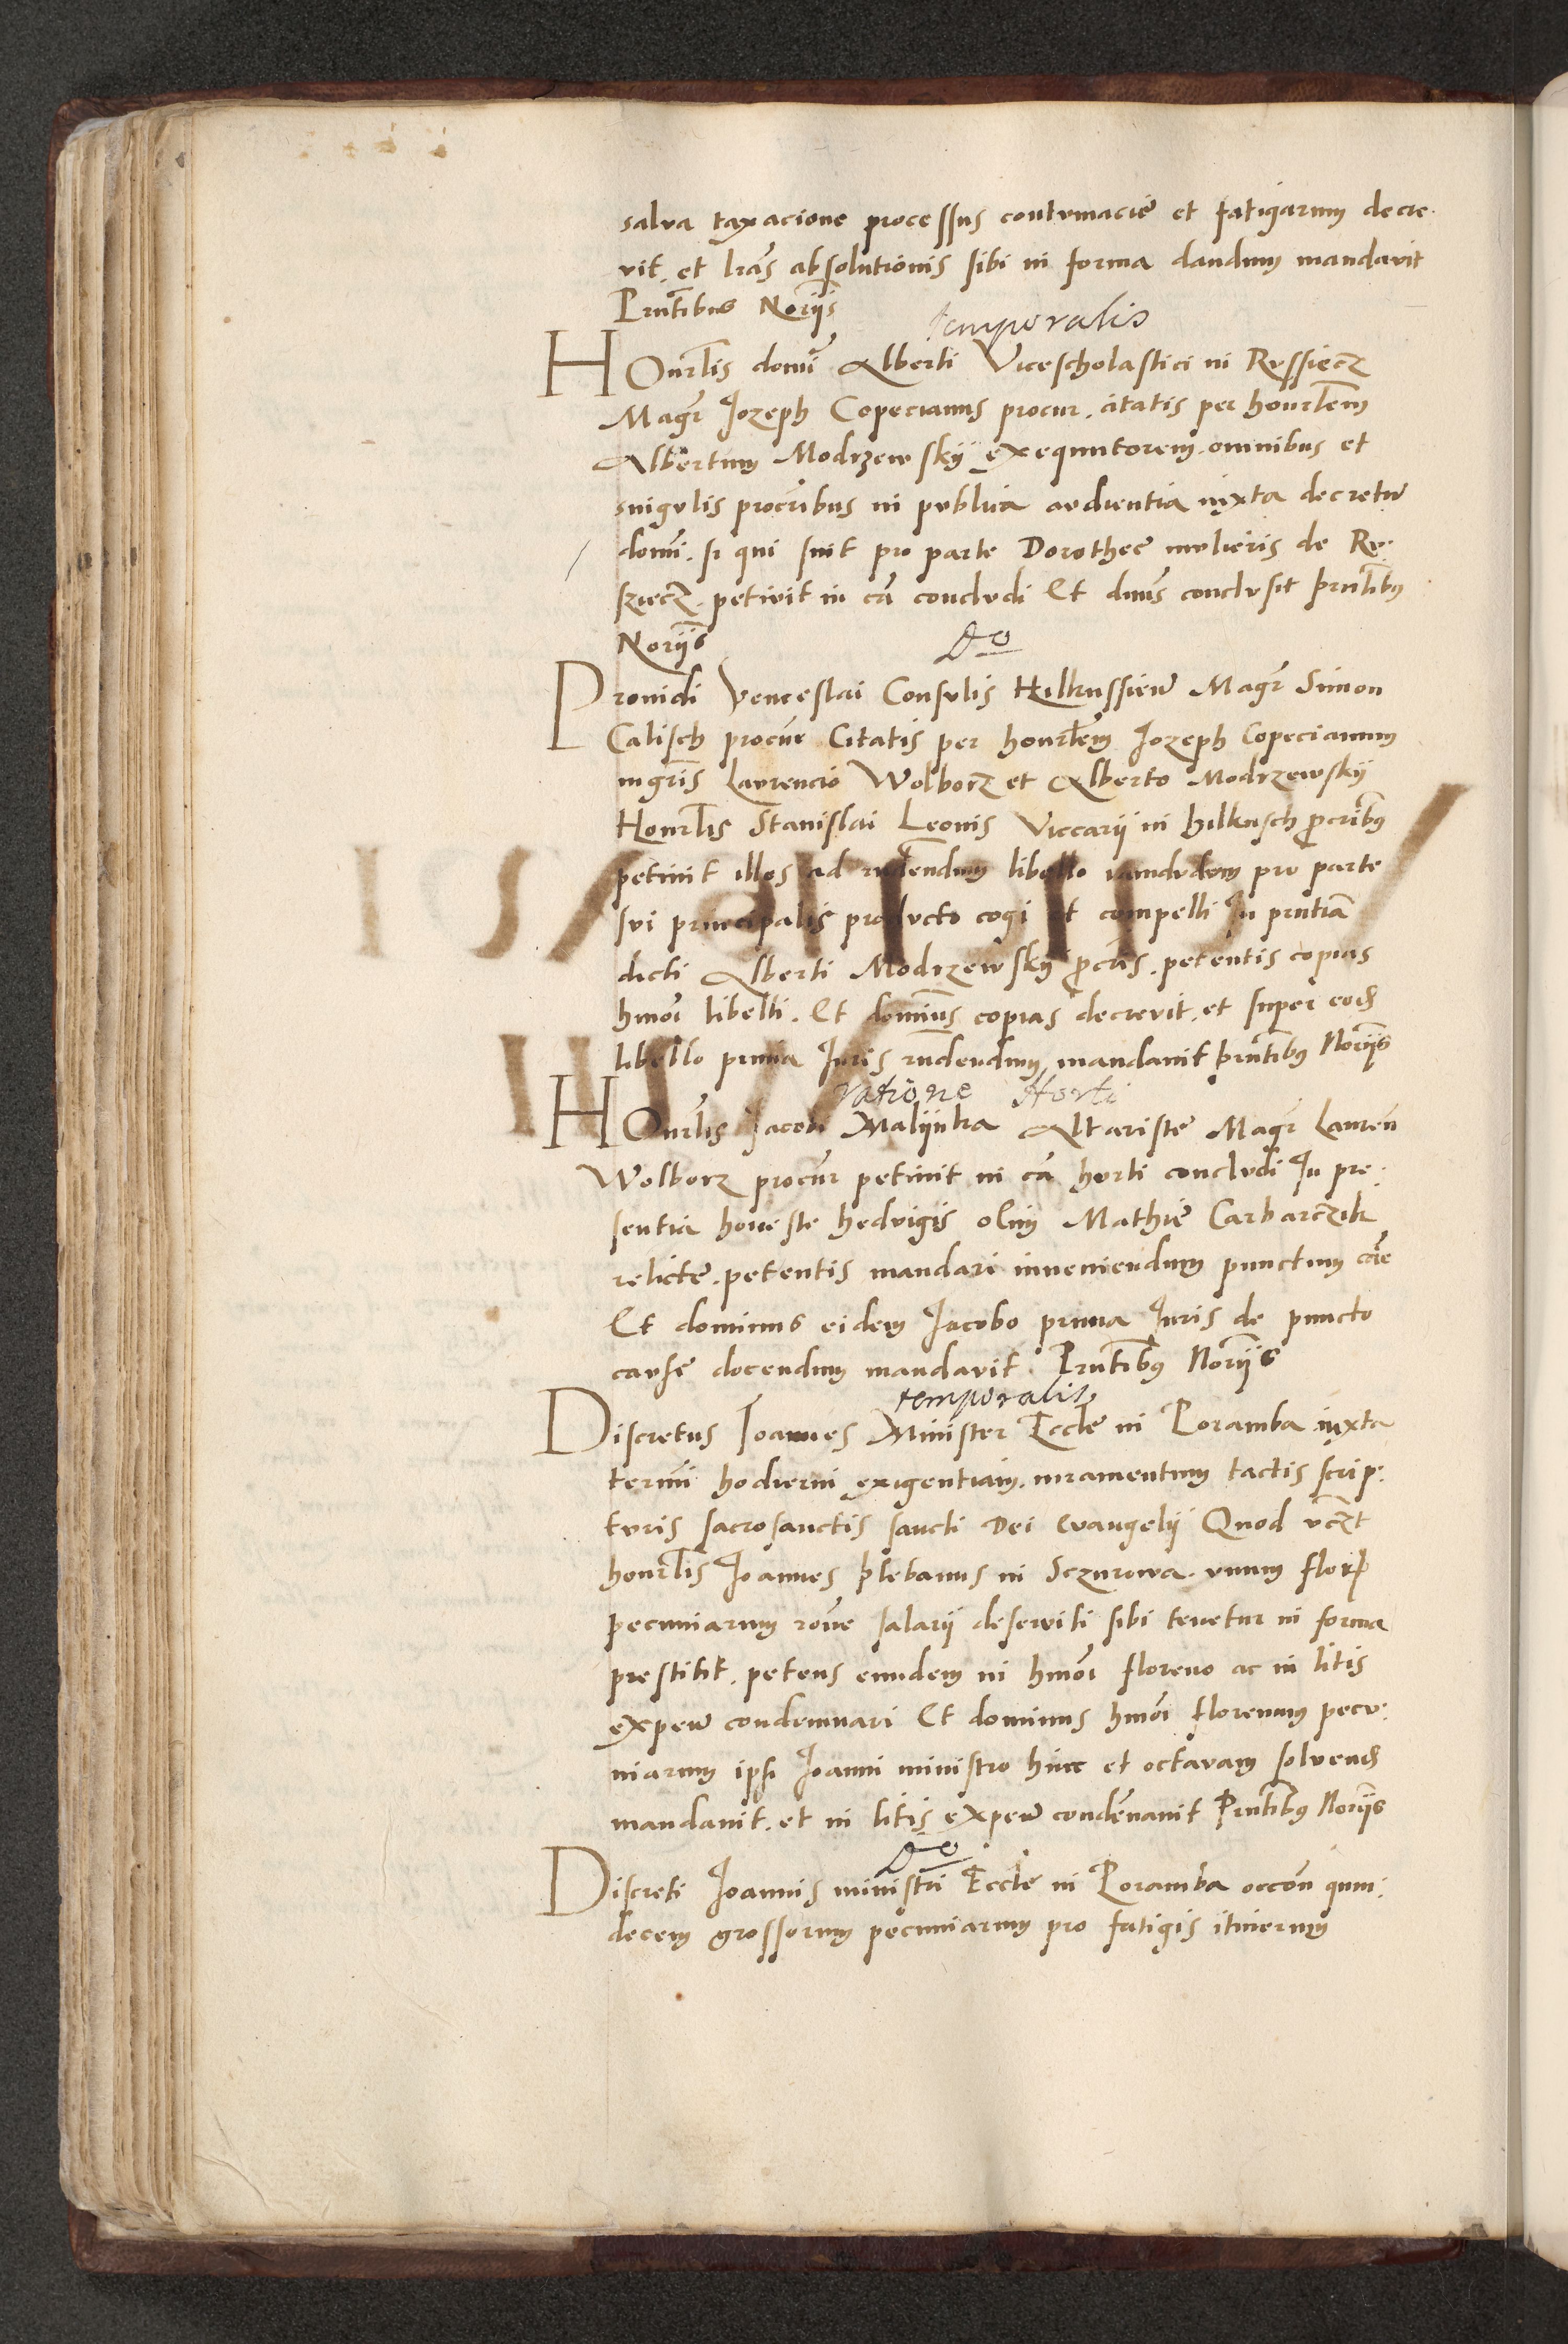 salva taxacione processus contumacie et fatigarum decre
vit. et lr̃as absolutionis sibi in forma dandum mandavit
Prñtibus Norijs
temporalis
HOnrlis domĩ Alberti Vicescholastici in Russiecz
Magr̃ Jozeph Copecianus procur. citatis per honrlem
Albertum Modrzewskÿ exequutorem. omnibus et
singulis procũribus in publica audientia iuxta decretũ
domĩ. si qui sint pro parte Dorothee mulieris de Ru
sziecz. petivit in cã concludi Et dnũs conclusit prñtibus
Norijs
Do
Providi Venceslai Consulis Hilkussien̄ Magr̃ Simon
Calisch procur̃ Citatis per honrlem Jozeph Copecianum
mgrĩs Laurencio Wolborz et Alberto Modrzewskÿ
Honrlis Stanislai Leonis Viccarij in hilkusch procribus
petivit illos ad rñdendum libello iamdudum pro parte
sui principalis producto cogi et compelli In prñtia
dicti Alberti Modrzewskÿ procris. petentis copias
hmõi libelli. Et dominus copias decrevit. et super eod
libello prima Juris rñdendum mandavit prñtibus Norijs
ratione Horti
HOnrlis Jacobi Malÿnka Altariste Magr̃ Lauren̄
Wolborz procur petivit in cã horti concludi In pre
sentia honeste hedvigis olim Mathie Carbarczik
relicte. petentis mandari inveniendum punctum cãe
Et dominus eidem Jacobo prima Juris de puncto
cause docendum mandavit. Prñtibus Norijs
temporalis
Discretus Joannes Minister Eccle in Poramba iuxta
termĩ hodierni exigentiam. iuramentum tactis scrip
turis sacrosanctis sancti Dei Evangelij Quod vczt
honrlis Joannes plebanus in Sczurowa. unum flor
pecuniarum rone salarij deserviti sibi tenetur in forma
prestitit. petens eundem in hmõi floreno ac in litis
expen̄ condemnari Et dominus hmõi florenum pecu
niarum ipsi Joanni ministro hinc et octavam solvend
mandavit. et in litis expen̄ condẽnavit Prñtibus Norijs
Do
Discreti Joannis ministri Eccle in Poramba occõn quin
decem grossorum pecuniarum pro fatigis itinerum